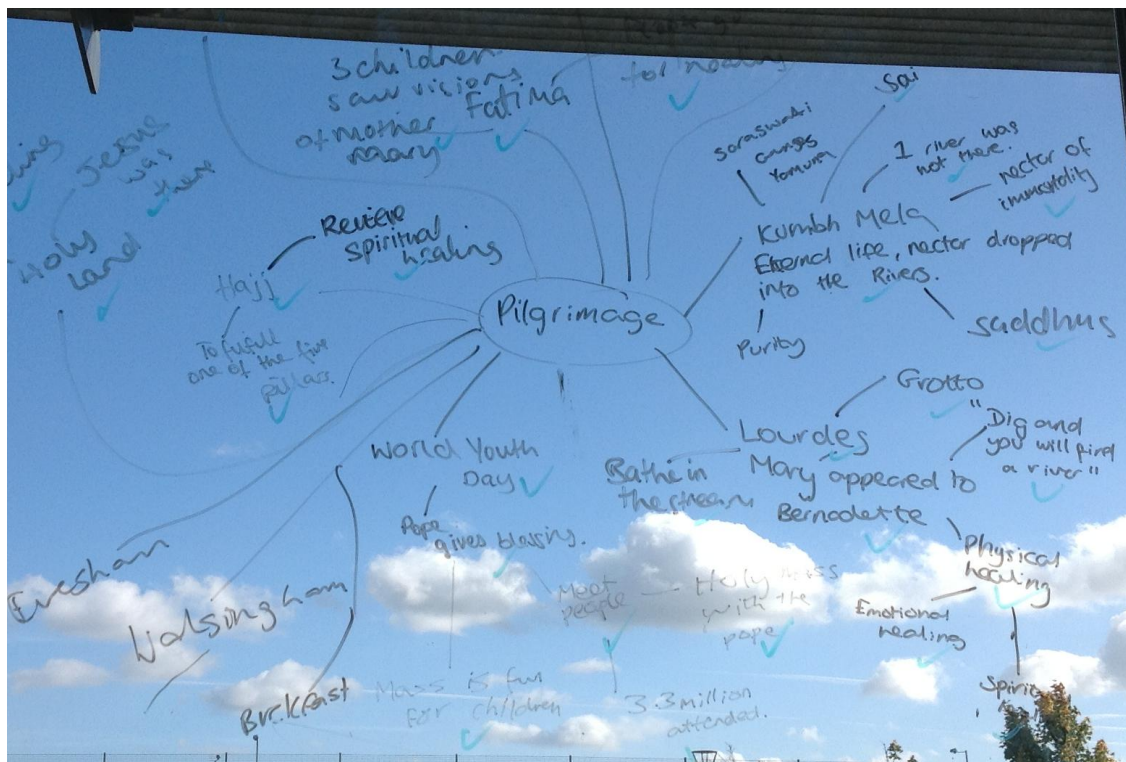 3 children
saw visions
of Mother
Mary
Fatima
for healing
Sai
Saraswati
Ganges
Yamuna
1 river was
not there.
nector of
immortality
Kumbh Mela
Eternal life, nector dropped
into the Rivers.
Purity
saddhus
Jesus
was
there
Holy
Land
Revere
Spiritual
healing
Hajj
To fufull
one of the five
pillars.
Pilgrimage
World Youth
Day
Pope
gives blessing.
Meet
people
Holy mass
with the
pope
Mass is fun
for children
3.3 million
attended.
Lourdes
Mary appeared to
Bernadette
Bathe in
the stream
Grotto
"Dig and
you will find
a river"
Physical
healing
Emotional
healing
Evesham
Walsingham